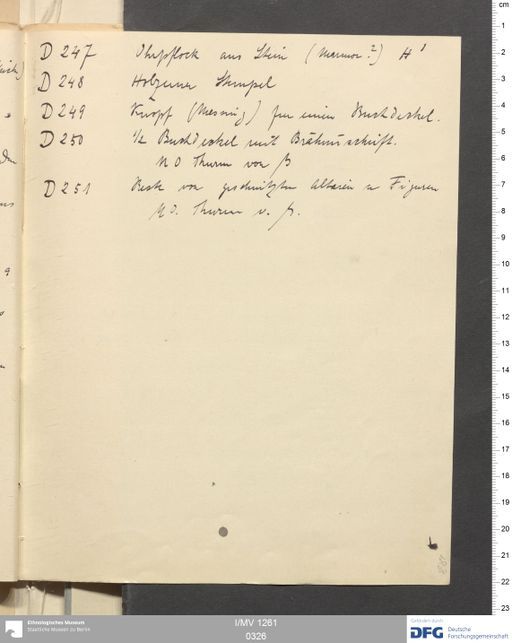 D 247 Ohrpflock aus Stein (Marmor?) H'
D 248 Hölzerner Stempel
D 249 Knopf (Messing) für einen Buchdeckel.
D 250 1/2 Buchdeckel mit Brāhmīschrift.
N O Thurm von β
D 251 Reste von geschnitzten Altären u Figuren
N O. Thurm v. β.
cm
1
2
3
4
5
6
7
8
9
10
11
12
13
14
15
16
17
18
19
20
21
22
23
Ethnologisches Museum
Staatliche Museen zu Berlin
I/MV 1261
0326
Gefördert durch
DFG Deutsche
Forschungsgemeinschaft